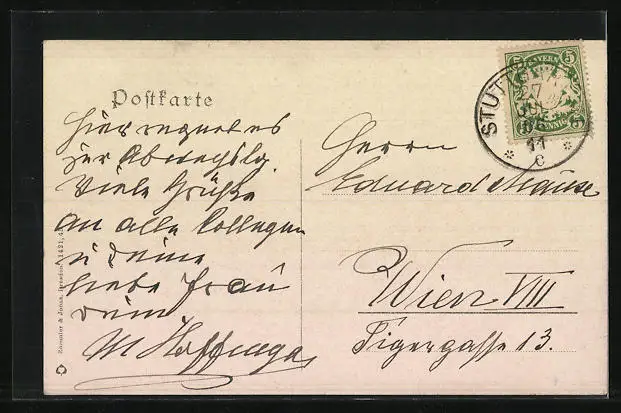 Postkarte
Hier regnet es
zur Abwechslg.
Viele Grüße
an alle Collegen
u deine
liebe Frau
dein
M
Herrn
Eduard Mause
Wien VIII
Tigergasse 13.
STUTTG
27
11
c
BAYERN
5 5
PFENNIG
Roemmler & Jonas, Dresden